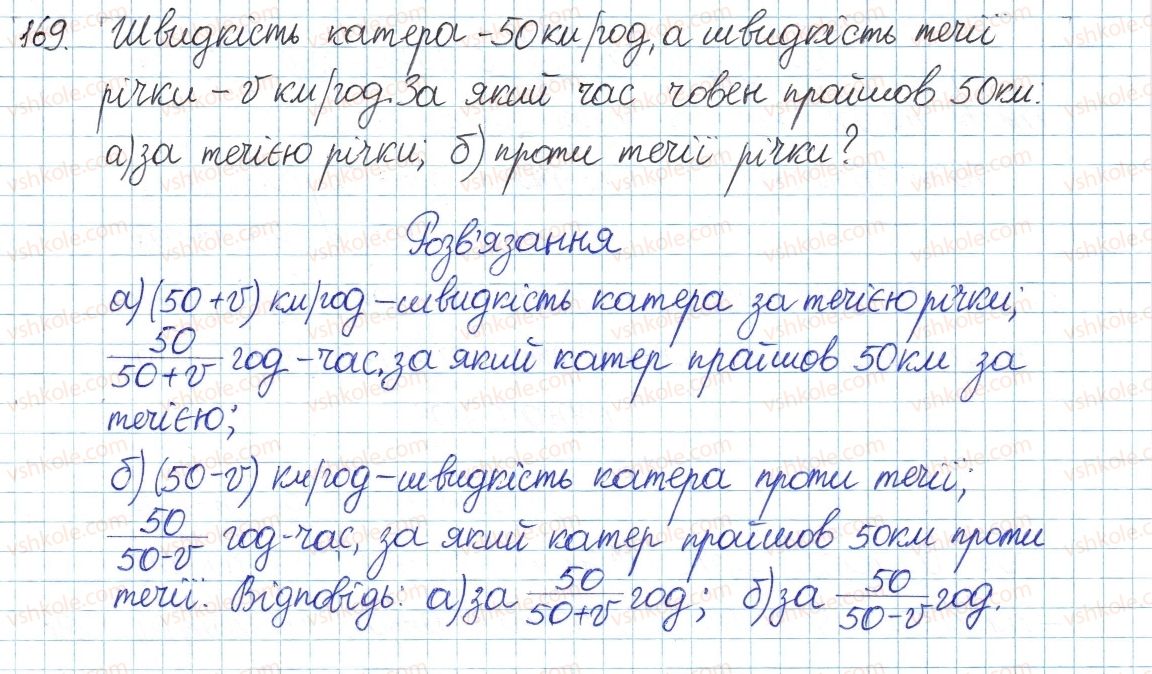 169. Швидкість катера - 50 км/год, а швидкість течії
річки - v км/год. За який час човен пройшов 50 км:
а) за течією річки; б) проти течії річки?
Розв'язання
а) (50 + v) км/год - швидкість катера за течією річки;
50/(50+v) год - час, за який катер пройшов 50 км за
течією;
б) (50 - v) км/год - швидкість катера проти течії;
50/(50-v) год - час, за який катер пройшов 50 км проти
течії. Відповідь: а) за 50/(50+v) год; б) за 50/(50-v) год.